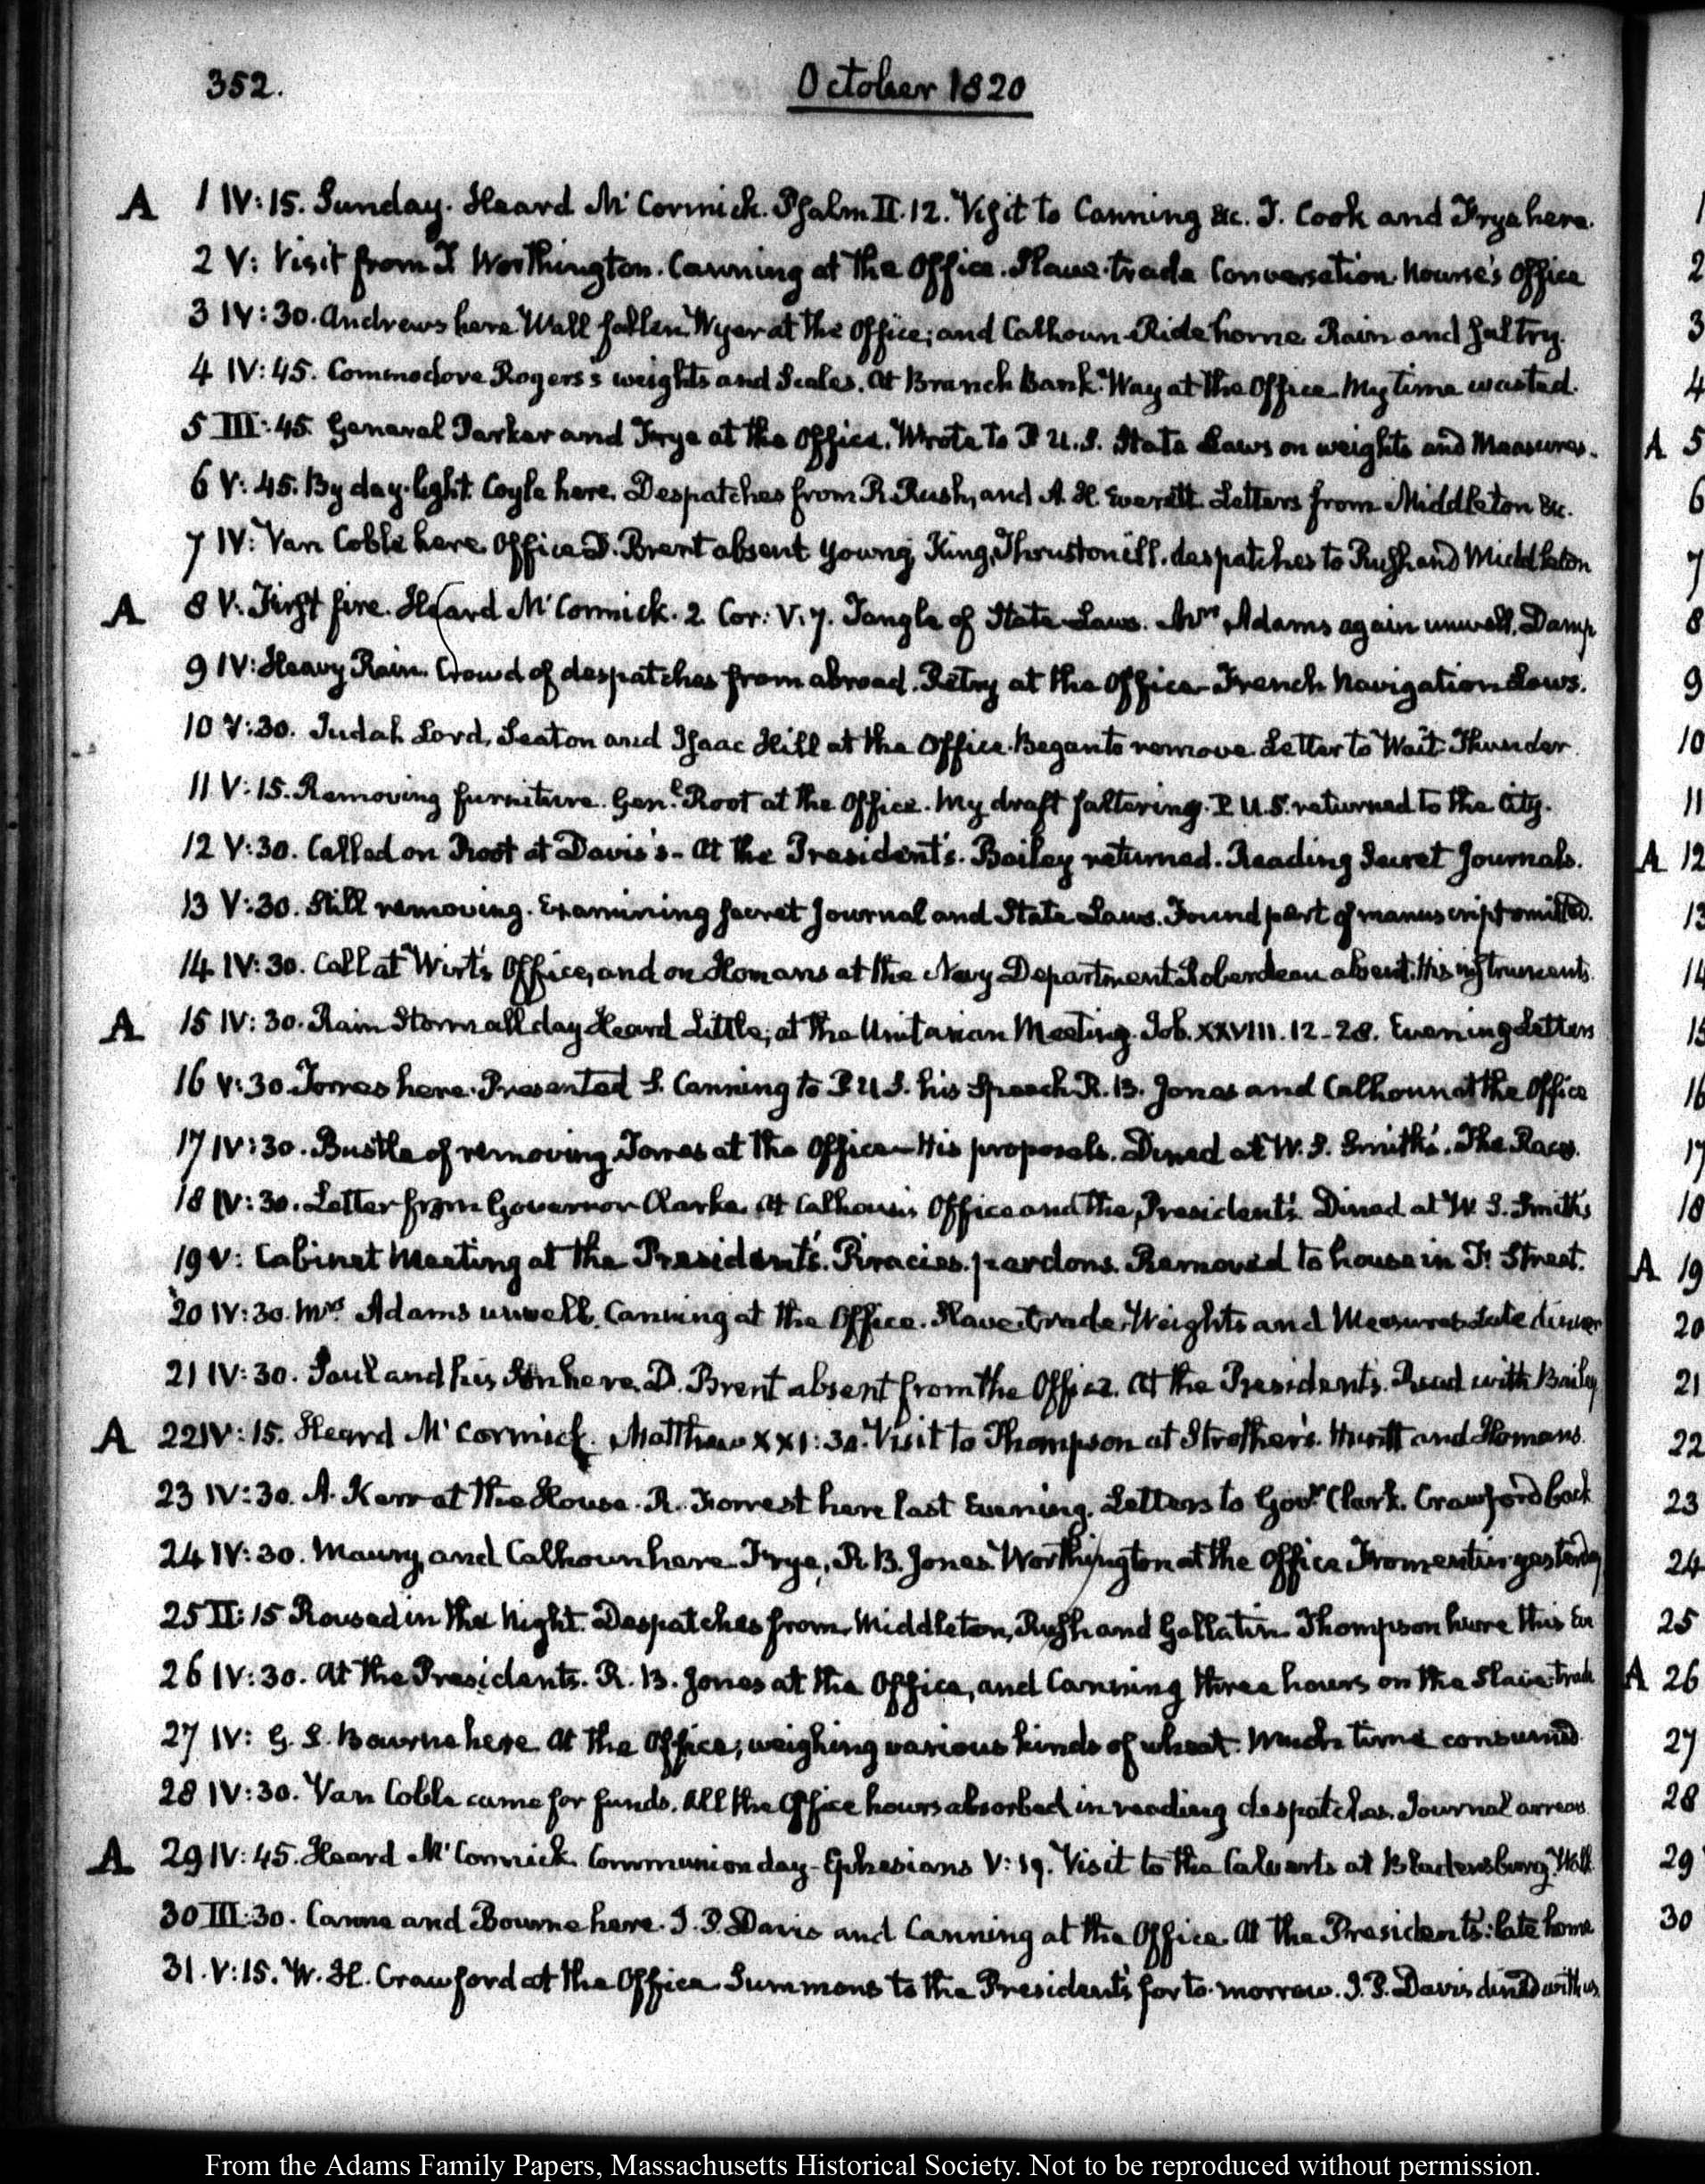 352.
October 1820
A 1 IV:15. Sunday. Heard McCormick. Psalm II.12. Visit to Canning &c. J. Cook and Frye here.
2 V: Visit from T Worthington. Canning at the Office. Slave-trade Conversation. Nourse's Office
3 IV:30. Andrews here Wall fallen. Wyer at the Office; and Calhoun. Ride home. Rain and sultry.
4 IV:45. Commodore Rogers's weights and Scales. At Branch Bank. Way at the Office. My time wasted.
5 III:45. General Parker and Frye at the Office. Wrote to P U.S. State Laws on weights and Measures.
6 V:45. By day-light. Coyle here. Despatches from R. Rush, and A. H. Everett. Letters from Middleton &c.
7 IV: Van Coble here. Office D. Brent absent. Young, King, Thruston ill. despatches to Rush and Middleton
A 8 V. First fire. Heard McCormick. 2 Cor: V.7. Tangle of State Laws. Mrs Adams again unwell. Damp
9 IV: Heavy Rain. Crowd of despatches from abroad. Petry at the Office. French Navigation Laws.
10 V:30. Judah Lord, Seaton and Isaac Hill at the Office. Began to remove. Letter to Wait. Thunder
11 V:15. Removing furniture. Genl. Root at the Office. My draft faltering. P. U.S. returned to the City.
12 V:30. Called on Root at Davis's. At the President's. Bailey returned. Reading Secret Journals.
13 V:30. Still removing. Examining secret Journal and State Laws. Found part of manuscript omitted.
14 IV:30. Call at Wirt's Office, and on Homans at the Navy Department. Roberdeau absent. His instruments.
A 15 IV:30. Rain Storm all day. Heard Little; at the Unitarian Meeting. Job. XXVIII. 12-28. Evening Letters
16 V:30 Torres here. Presented S. Canning to P U S. his Speech. R. B. Jones and Calhoun at the Office
17 IV:30. Bustle of removing. Torres at the Office. His proposals. Dined at W. S. Smith's. The Races.
18 IV:30. Letter from Governor Clarke. At Calhoun's Office and the President's. Dined at W. S. Smith's
19 V: Cabinet Meeting at the President's. Piracies. pardons. Removed to house in F. Street.
20 IV:30. Mrs Adams unwell. Canning at the Office. Slave trade. Weights and Measures. Late dinner
21 IV:30. Paul and his Son here. D. Brent absent from the Office. At the President's. Read with Bailey
A 22 IV:15. Heard McCormick. Matthew XXI:30. Visit to Thompson at Strother's. and Homans.
23 IV:30. A. Kerr at the House. R. Forrest here last Evening. Letters to Govr Clark. Crawford back
24 IV:30. Maury, and Calhoun here. Frye, R. B. Jones. Worthington at the Office. Fromentin yesterday
25 II:15 Roused in the Night. Despatches from Middleton, Rush and Gallatin. Thompson here this Ev
26 IV:30. At the President's. R. B. Jones at the Office, and Canning three hours on the Slave-trade
27 IV: G. S. Bourne here. At the Office; weighing various kinds of wheat. Much time consumed.
28 IV:30. Van Coble came for funds. All the Office hours absorbed in reading despatches. Journal arrears
A 29 IV:45. Heard McCormick. Communion day. Ephesians V:19. Visit to the Calverts at Bladensburg. Wall
30 III:30. and Bourne here. J. P. Davis and Canning at the Office. At the President's: late home
31. V:15. W. H. Crawford at the Office. Summons to the President's for to-morrow. J. P. Davis dined with us.
From the Adams Family Papers, Massachusetts Historical Society. Not to be reproduced without permission.